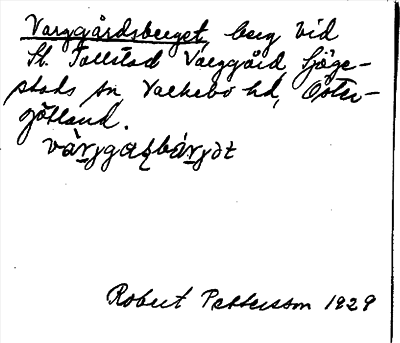 Varggårdsberget, berg vid
St. Tollstad Varggård, Sjöge-
stads sn Valkebo hd, Öster-
götland.
Robert Pettersson 1929